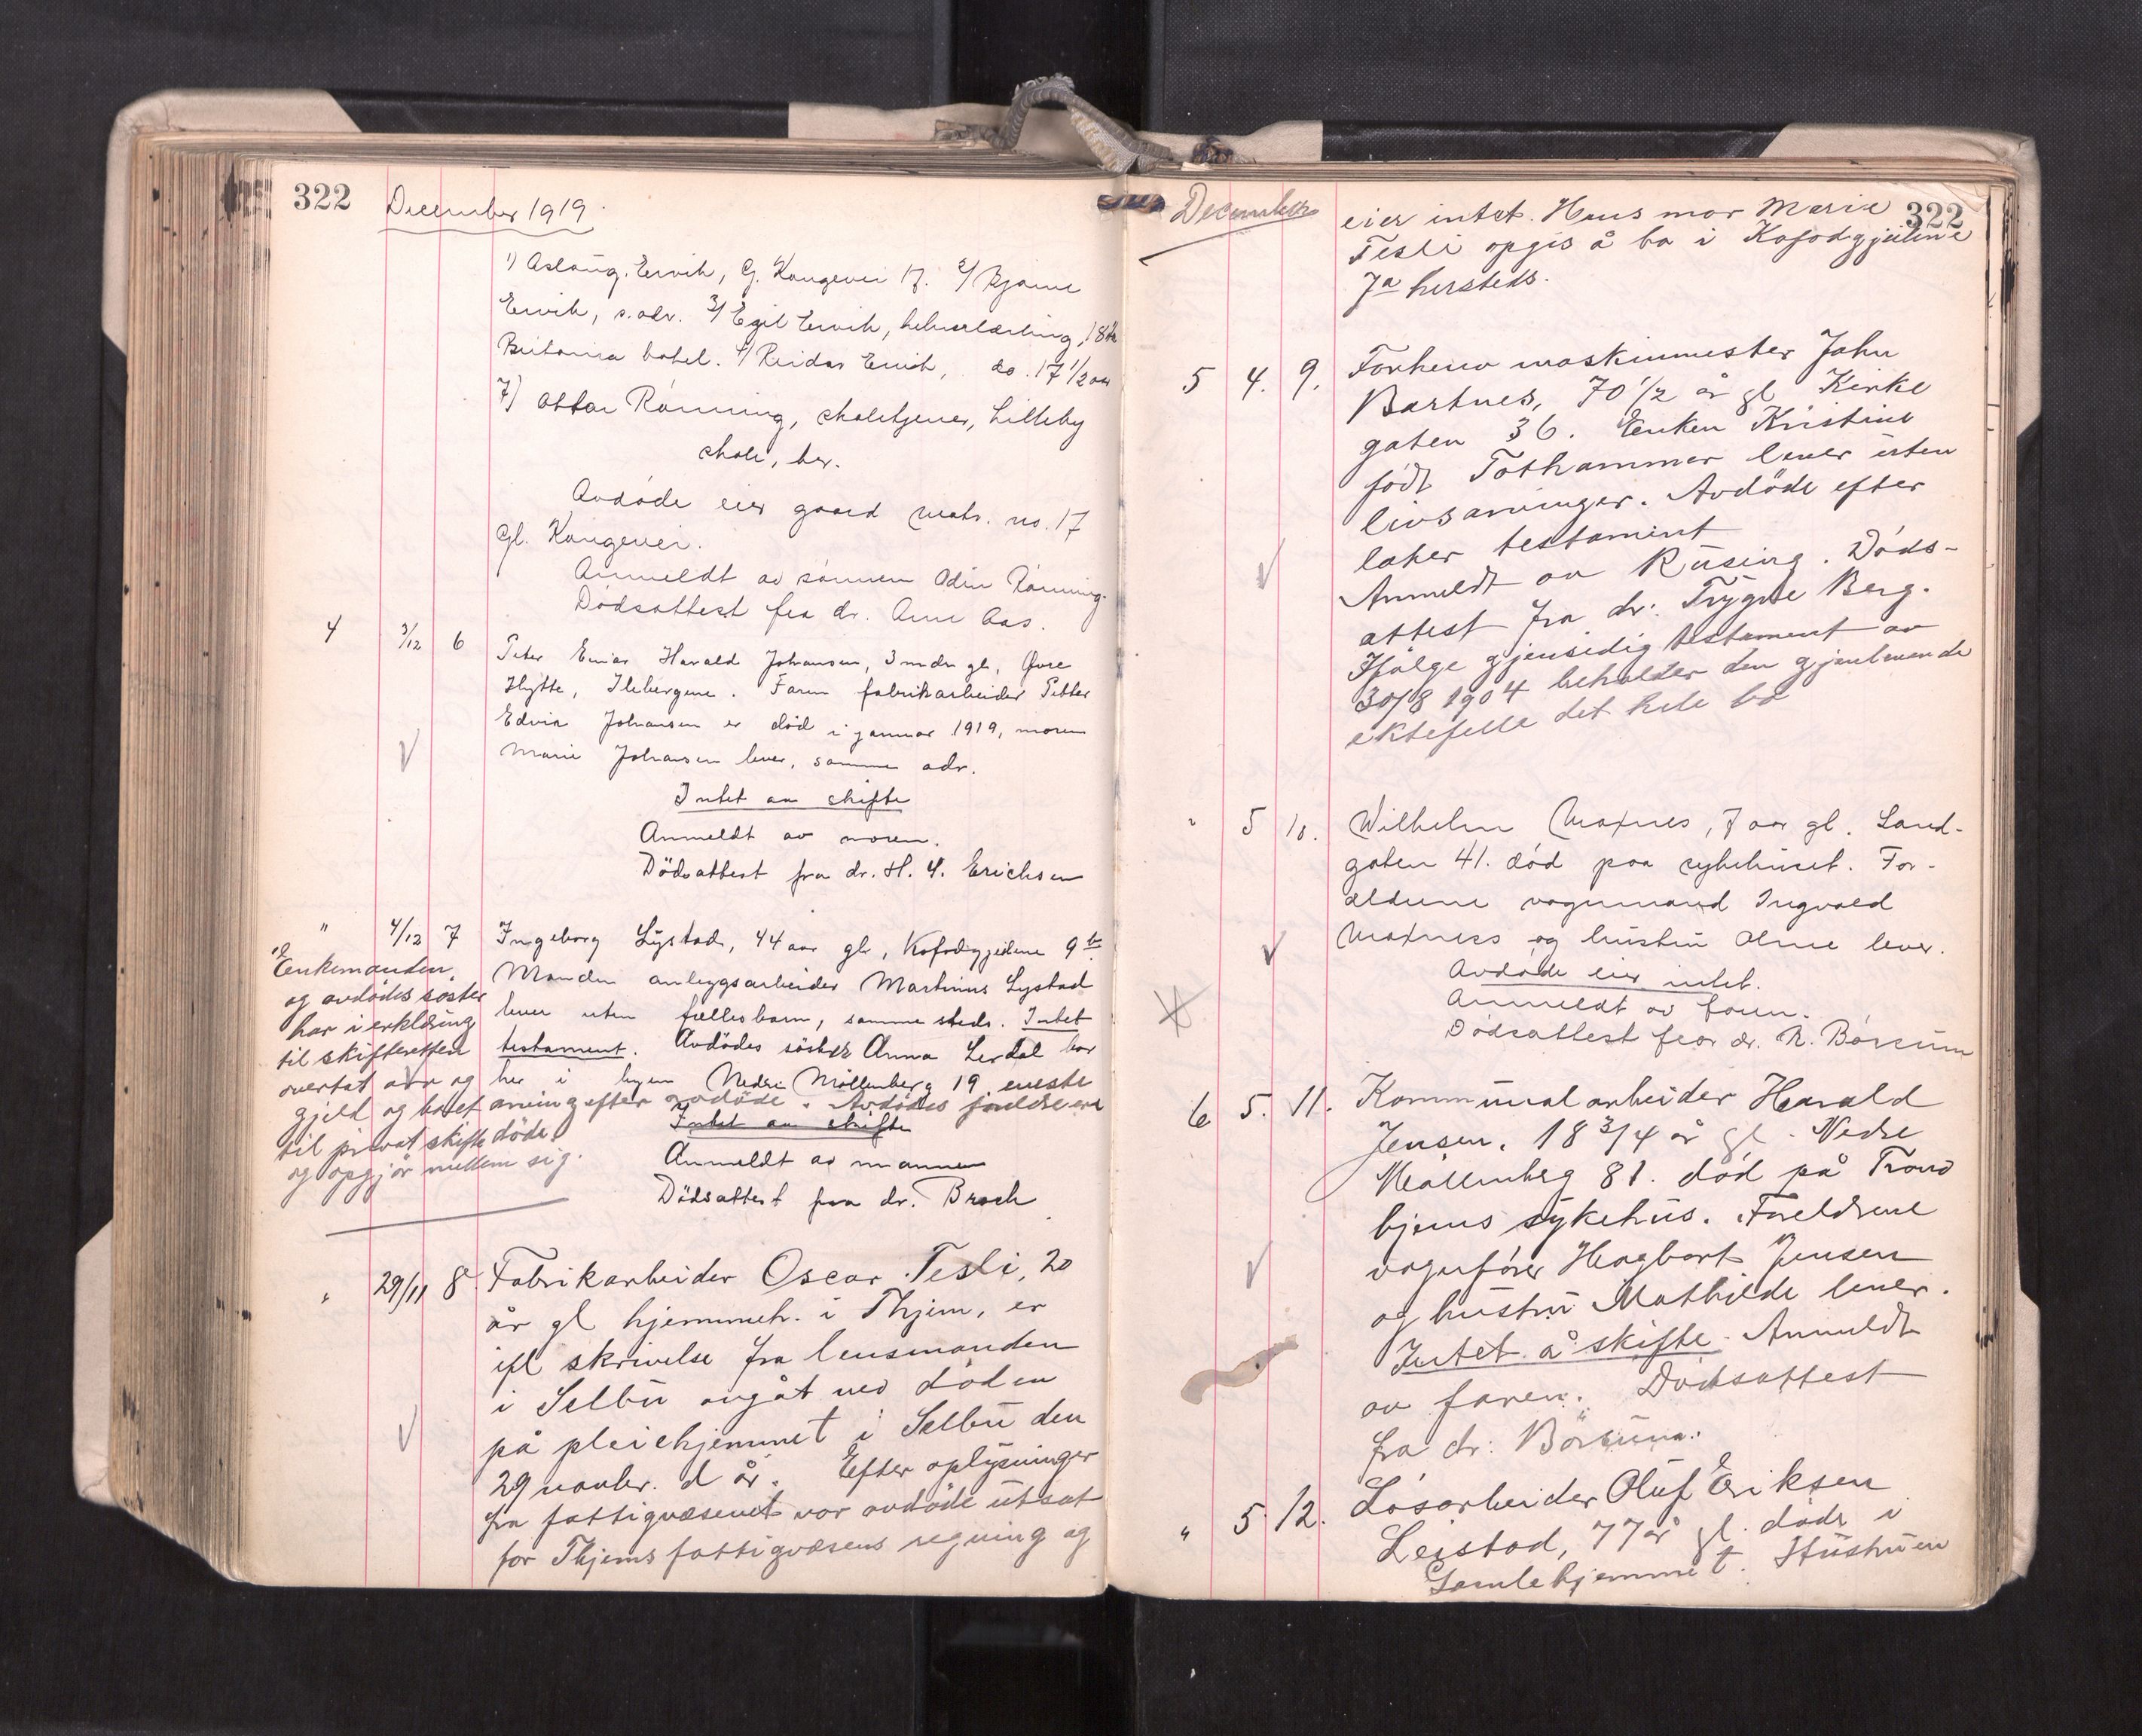 322 December 1919.
1) Aslaug Ervik, Gl. Kongevei 17. 2/ Bjarne
Ervik, s. adr. 3/ Egil Ervik, kelnerlærling, 18 aar
Britania hotel. 4/ Reidar Ervik, do. 17 1/2 aar
7) Ottar Rönning, skoletjener, Lilleby
skole, her.
Avdöde eier gaard matr. no. 17
Gl. Kongevei.
Anmeldt av sönnen Odin Rönning.
Dödsattest fra dr. Arne Aas.
4 3/12 6 Peter Einar Harald Johansen, 3 mdr gl, Övre
Hytte, Ilebergene. Faren fabrikarbeider Petter
Edvin Johansen er död i januar 1919, moren
Marie Johansen lever, samme adr.
Intet aa skifte
Anmeldt av moren.
Dödsattest fra dr. H. Y. Erichsen
" 4/12 7 Ingeborg Lystad, 44 aar gl, Kofodgjeilene 9 b.
Manden anlægsarbeider Martinus Lystad
lever uten fællesbarn, samme steds. Intet
testament. Avdödes söster Anna Lerdal bor
her i byen Nedre Möllenberg 19 eneste
arving efter avdöde. Avdödes foreldre er
döde.
Intet aa skifte
Anmeldt av mannen
Dödsattest fra dr. Broch
Enkemanden
og avdödes söster
har i erklæring
til skifteretten
overtat arv og
gjeld og boet
til privat skifte
og opgjör mellem sig.
" 29/11 8. Fabrikarbeider Oscar Tesli, 20
år gl hjemmeh. i Thjem, er
ifl skrivelse fra lensmanden
i Selbu avgåt ved döden
på pleiehjemmet i Selbu den
29 novbr. d år. Efter oplysninger
fra fattigvæsenet var avdöde utsat
for Thjems fattigvæsens regning og
December 322
eier intet. Hans mor Marie
Tesli opgis å bo i Kofodgjeilene
7a hersteds.
5 4. 9. Forhenv maskinmester John
Bartnes, 70 1/2 år gl Kirke
gaten 36. Enken Kristine
född Tothammer lever uten
livsarvinger. Avdöde efter
later testament
Anmeldt av Rusing. Döds-
attest fra dr: Trygve Berg.
Ifölge gjensidig testament av
30/8 1904 beholder den gjenlevende
ektefelle det hele bo
" 5 10. Wilhelm Moxnes, 7 aar gl. Sand-
gaten 41. död paa sykehuset. For-
ældrene vognmand Ingvald
Moxness og hustru Oline lever.
Avdöde eier intet.
Anmeldt av faren.
Dödsattest fra dr. N. Börsum
6 5. 11. Kommunalarbeider Harald
Jensen, 18 3/4 år gl. Nedre
Möllenberg 81. död på Trond
hjems sykehus. Foreldrene
vognförer Hagbart Jensen
og hustru Mathilde lever.
Intet å skifte. Anmeldt
av faren. Dödsattest
fra dr: Börsum.
" 5. 12. Lösarbeider Oluf Eriksen
Leistad, 77 år gl. döde i
Gamlehjemmet. Hustruen